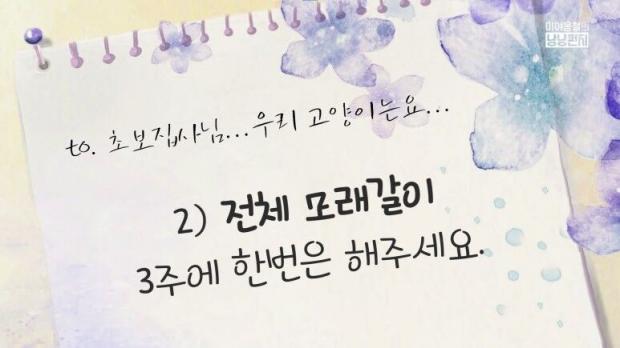 미야옹철의
냥냥펀치
to. 초보집사님...우리 고양이는요...
2) 전체 모래갈이
3주에 한번은 해주세요.